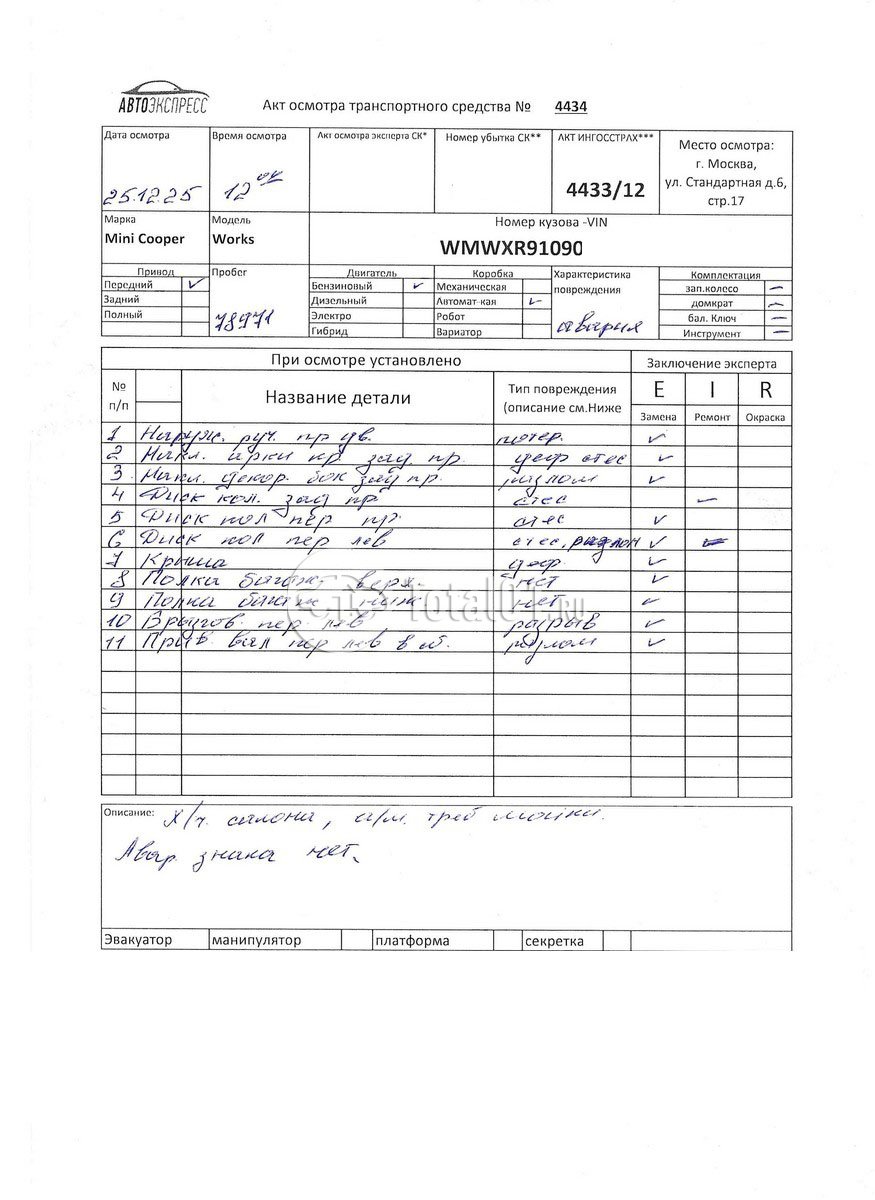 АВТОЭКСПРЕСС
Акт осмотра транспортного средства № 4434
Дата осмотра
Время осмотра
Акт осмотра эксперта СК*
Номер убытка СК**
АКТ ИНГОССТРАХ***
Место осмотра:
г. Москва,
ул. Стандартная д.6,
стр.17
25.12.25
12 00
4433/12
Марка
Модель
Номер кузова -VIN
Mini Cooper
Works
WMWXR91090
Привод
Пробег
Двигатель
Коробка
Характеристика
повреждения
Комплектация
Передний ✓
Бензиновый ✓
Механическая
зап.колесо –
Задний
Дизельный
Автомат-кая ✓
домкрат –
Полный
Электро
Робот
бал. Ключ –
Гибрид
Вариатор
Инструмент –
78971
авария
При осмотре установлено
Заключение эксперта
№
п/п
Название детали
Тип повреждения
(описание см.Ниже
E I R
Замена Ремонт Окраска
1 Наруж. руч. пр дв. потер. ✓
2 Накл. арки кр. зад. пр. деф стес ✓
3 Накл. декор. бок зад пр. разлом ✓
4 Диск кол. зад пр. стес –
5 Диск кол пер пр. стес ✓
6 Диск кол пер лев стес, разлом ✓
7 Крыша деф ✓
8 Полка багаж. верх. нет ✓
9 Полка багаж ниж. нет ✓
10 пер лев разрыв ✓
11 Прив. вал пер лев в сб. разлом ✓
Total01.RU
Описание: Х/ч. салона, а/м. треб мойки.
Авар. знака нет.
Эвакуатор
манипулятор
платформа
секретка